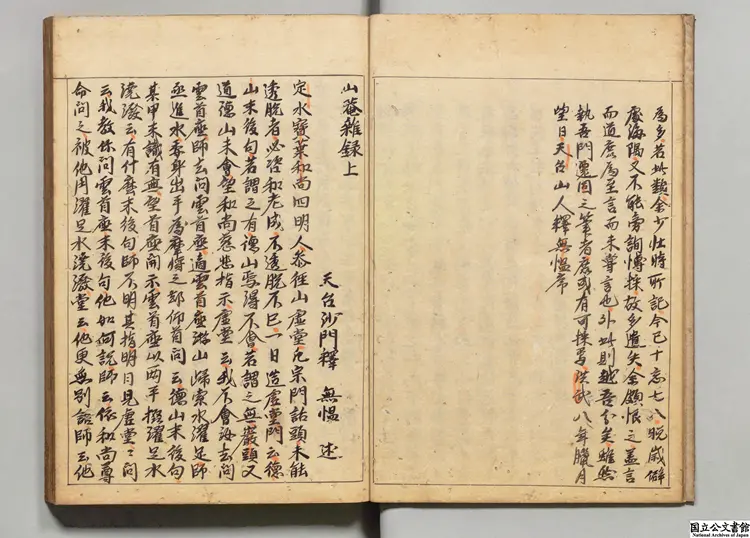 為多若此類余少壯時所記今已十忘七八晩歳僻
處海陽又不能旁詢博採故多遺失余頗恨之蓋言
而道庶為至言而未尊言也外此則越吾分矣雖然
執吾門遷固之筆者庶或有可採焉洪武八年臘月
望日天台山人釋無慍序
山菴雜録上
天台沙門釋 無慍 述
定水寳葉和尚四明人參徑山虚堂凡宗門詰頭未能
透脱者必咨和老成不透脱不已一日造虚堂門云德
山末後句若謂之有德山焉得不會若謂之無巖頭又
道德山未會望和尚慈悲指示虚堂云我不會汝去問
雲首座師去問雲首座適雲首座游山歸索水濯足師
亟進水委身出手為摩捋之却仰首問云德山末後句
某甲未識有無望首座開示雲首座以兩手掇濯足水
澆潑云有什麽末後句師不明其指明日見虚堂〻問
云我教你問雲首座末後句他如何説師云依和尚尊
命問之被他用濯足水澆潑堂云他更無別語師云他
国立公文書館
National Archives of Japan